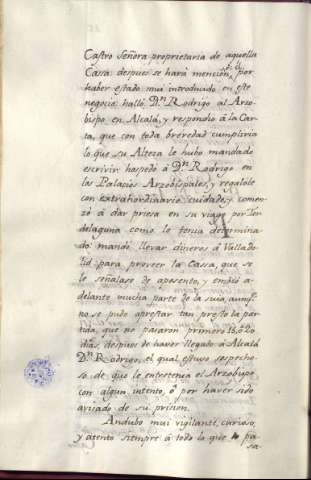 Castro Señora proprietaria de aquella
Cassa: despues se hará menciôn, por
haber estado mui introducido en este
negocio: halló Dⁿ Rodrigo al Arzo-
bispo en Alcalá, y respondio á la Car-
ta, que con toda brevedad cumpliria
lo que su Alteza le hubo mandado
escrivir: hospedó á Dⁿ Rodrigo en
las Palacios Arzobispales, y regalole
con extrahordinario cuidado, y comen-
zó á dar priesa en su viage por Tor-
delaguna como lo tenia determina-
do: mandó llevar dineros á Vallado-
lid para proveer la Cassa, que se
le señalase de aposento, y embió a-
delante mucha parte de la suia, aunqᵉ
no se pudo aprestar tan presto la par-
tida, que no pasaron primero 18, ó 20
dias, despues de haver llegado á Alcalá
Dⁿ Rodrigo, el qual estuvo sospecho-
so de que le entretenia el Arzobispo
con algun intento, ó por haver sido
avisado de su prision.
Andubo mui vigilante, curioso,
y atento siempre á todo lo que pa-
sa-